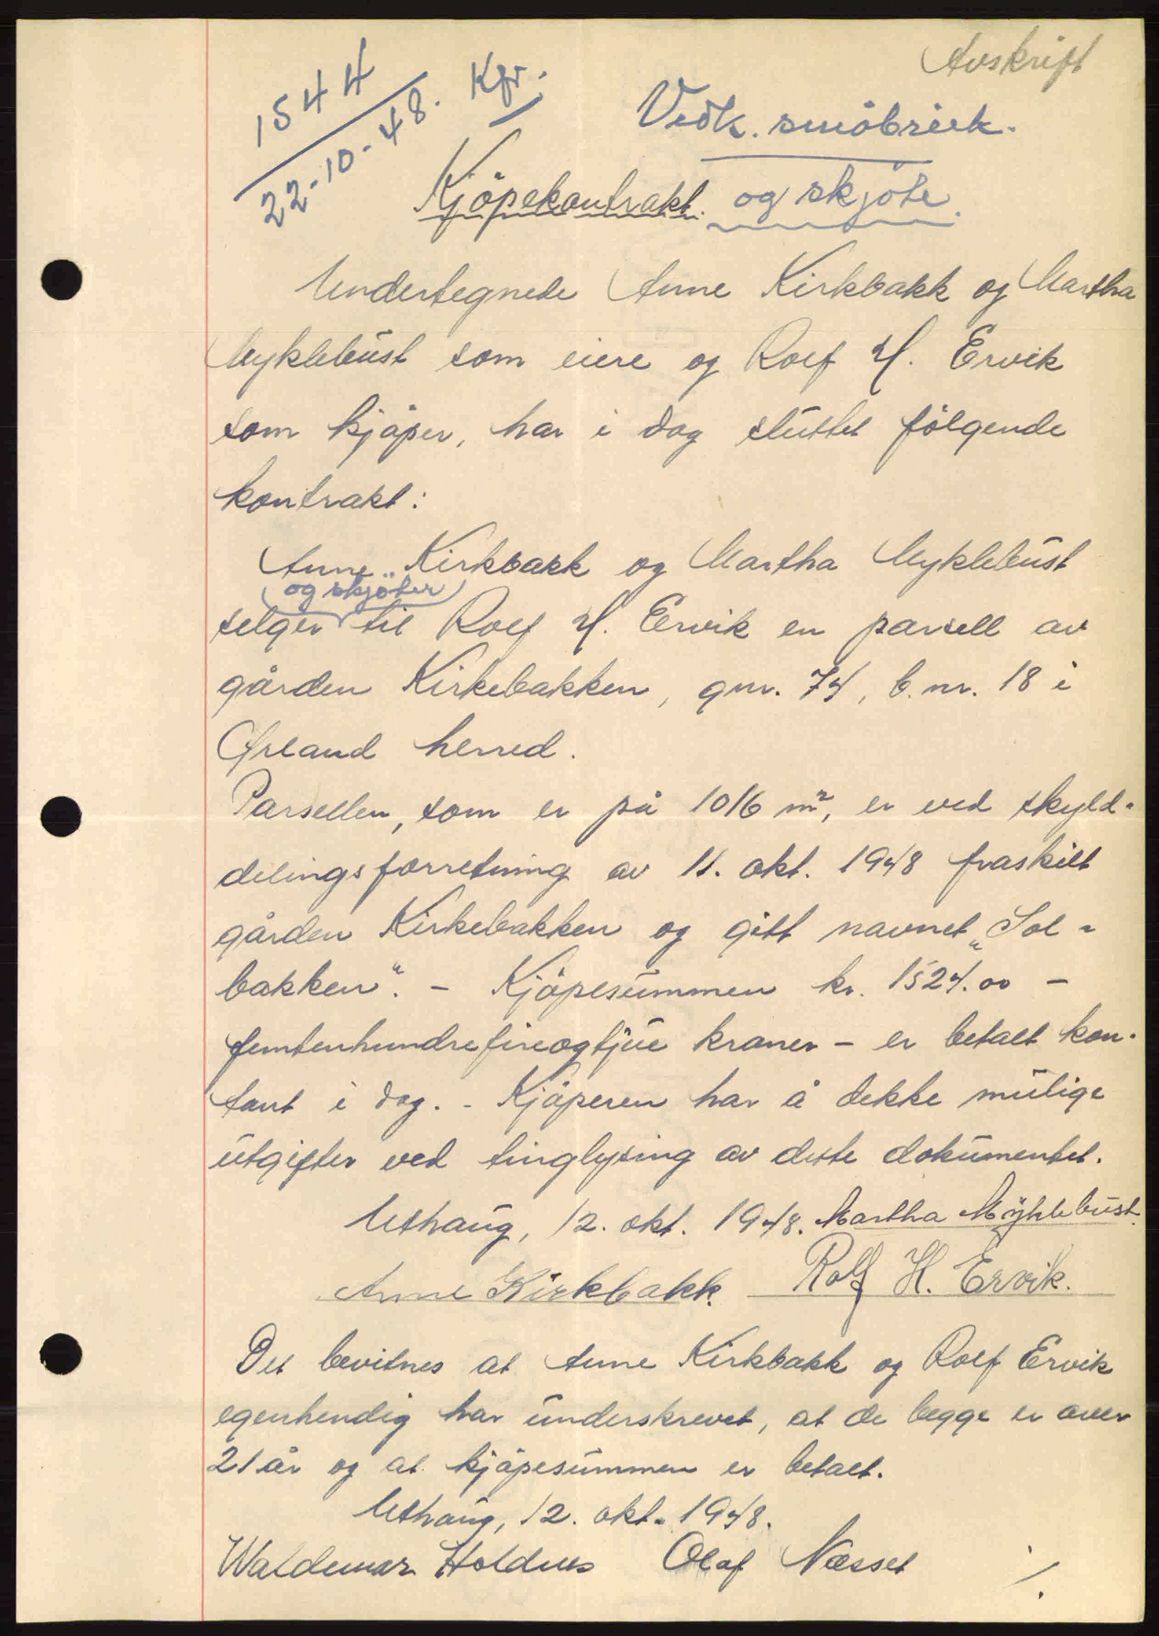 Avskrift
1544
22-10-48. Kfr.
Vedk. småbruk.
Kjöpekontrakt. og skjöte.
Undertegnede Anne Kirkbakk og Martha
Myklebust som eiere og Rolf H. Ervik
som kjöper, har i dag sluttet fölgende
kontrakt:
Anne Kirkbakk og Martha Myklebust
(og skjöter)
selger til Rolf H. Ervik en parsell av
gården Kirkebakken, gnr. 74, b.nr. 18 i
Örland herred.
Parsellen, som er på 1016 m², er ved skyld-
delingsforretning av 11. okt. 1948 fraskilt
gården Kirkebakken og gitt navnet „Sol-
bakken“. - Kjöpesummen kr. 1524.00 -
femtenhundrefireogtjue kroner - er betalt kon-
tant i dag. - Kjöperen har å dekke mulige
utgifter ved tinglysing av dette dokumentet.
Uthaug, 12. okt. 1948. Martha Myklebust
Anne Kirkbakk. Rolf H. Ervik.
Det bevitnes at Anne Kirkbakk og Rolf Ervik
egenhendig har underskrevet, at de begge er over
21 år og at kjöpesummen er betalt.
Uthaug, 12. okt. 1948.
Waldemar Holdnes Olaf Næsset ./.